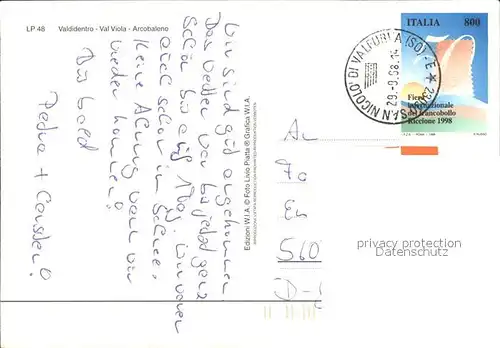 LP 48 Valdidentro - Val Viola - Arcobaleno
Wir sind gut angekommen.
Das Wetter war bis jetzt ganz
schön bis auf 1 Tag. Wir waren
auch schon im Schnee.
Keine Ahnung wann wir
wieder kommen?
Bis bald
Petra + Carsten!
Edizioni W.I.A. © Foto Livio Piatta ® Grafica W.I.A.
SAN NICOLO' DI VALFURVA (SO)
29.-9.98.-14
ITALIA 800
Fiera
internazionale
del francobollo
Riccione 1998
An
Fa
En
510
D-
privacy protection
Datenschutz